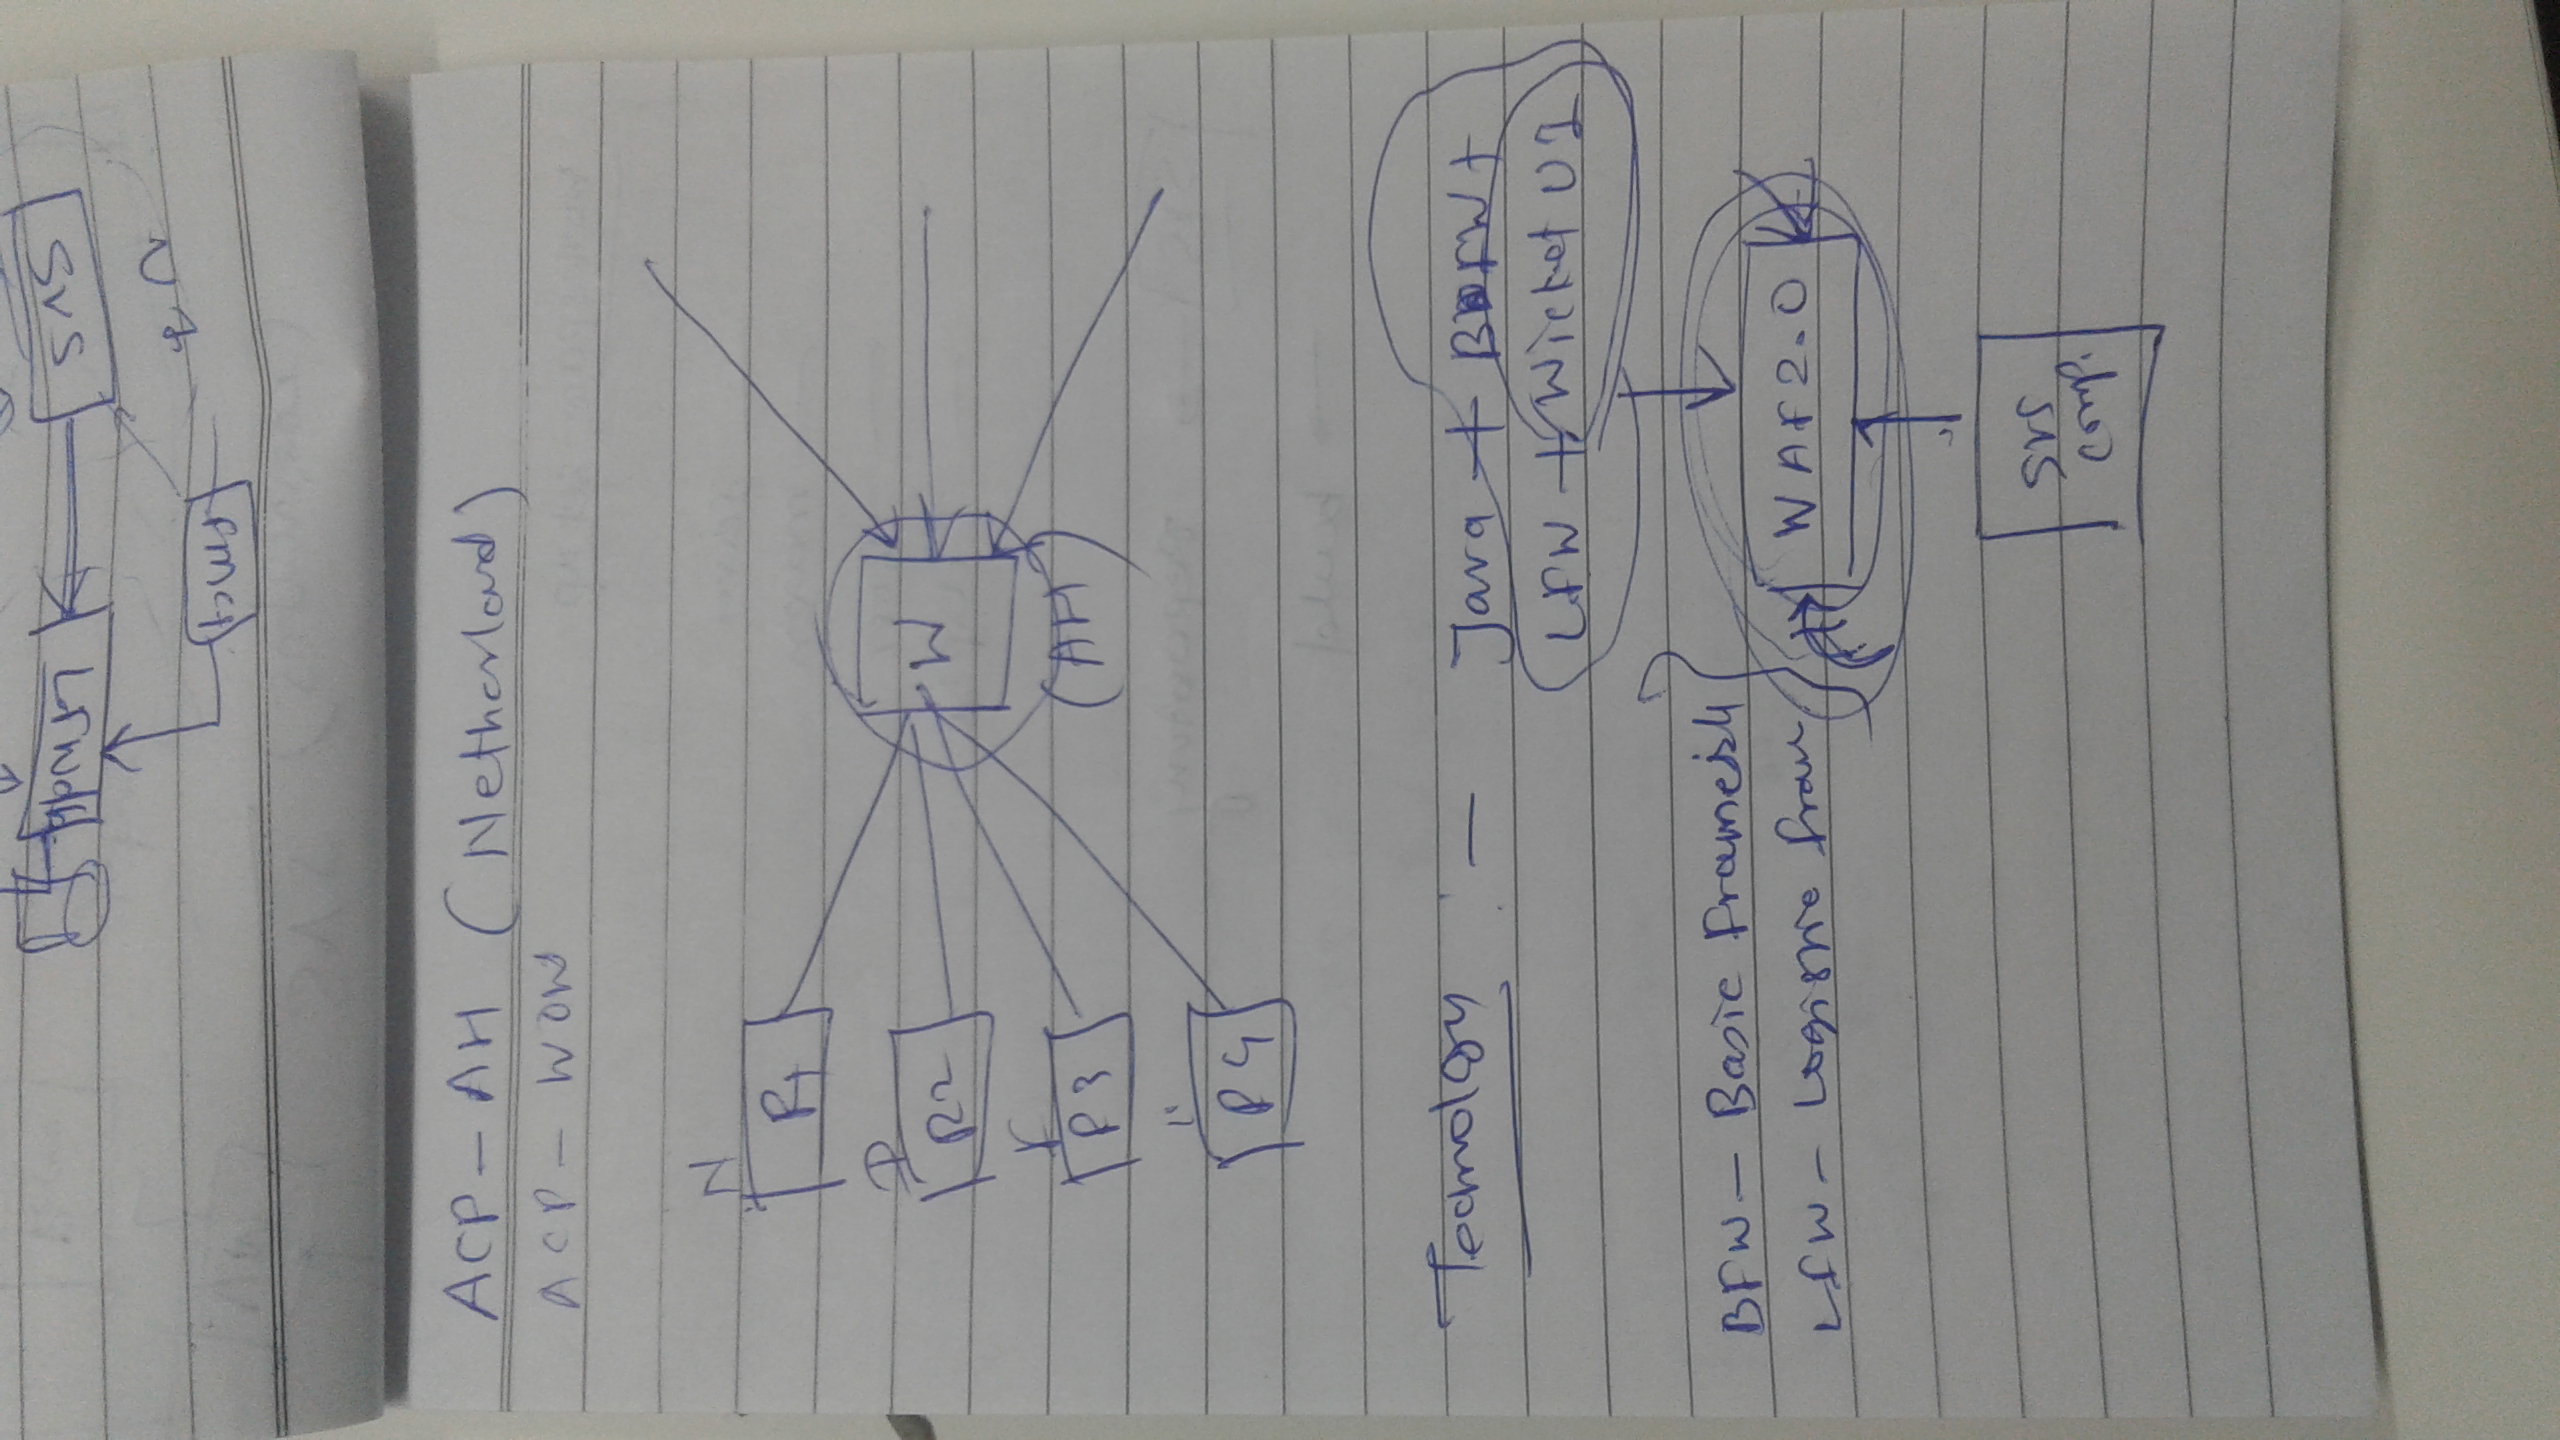 SVS
ACP - AH (Netherland)
ACP - WOW
N
P1
D
P2
F
P3
P4
W
(AH)
Technology - Java + BFW +
LFW + Wicket UI
BFW - Basic
LFW - Logistic
WAF 2.0
SVS
comp.